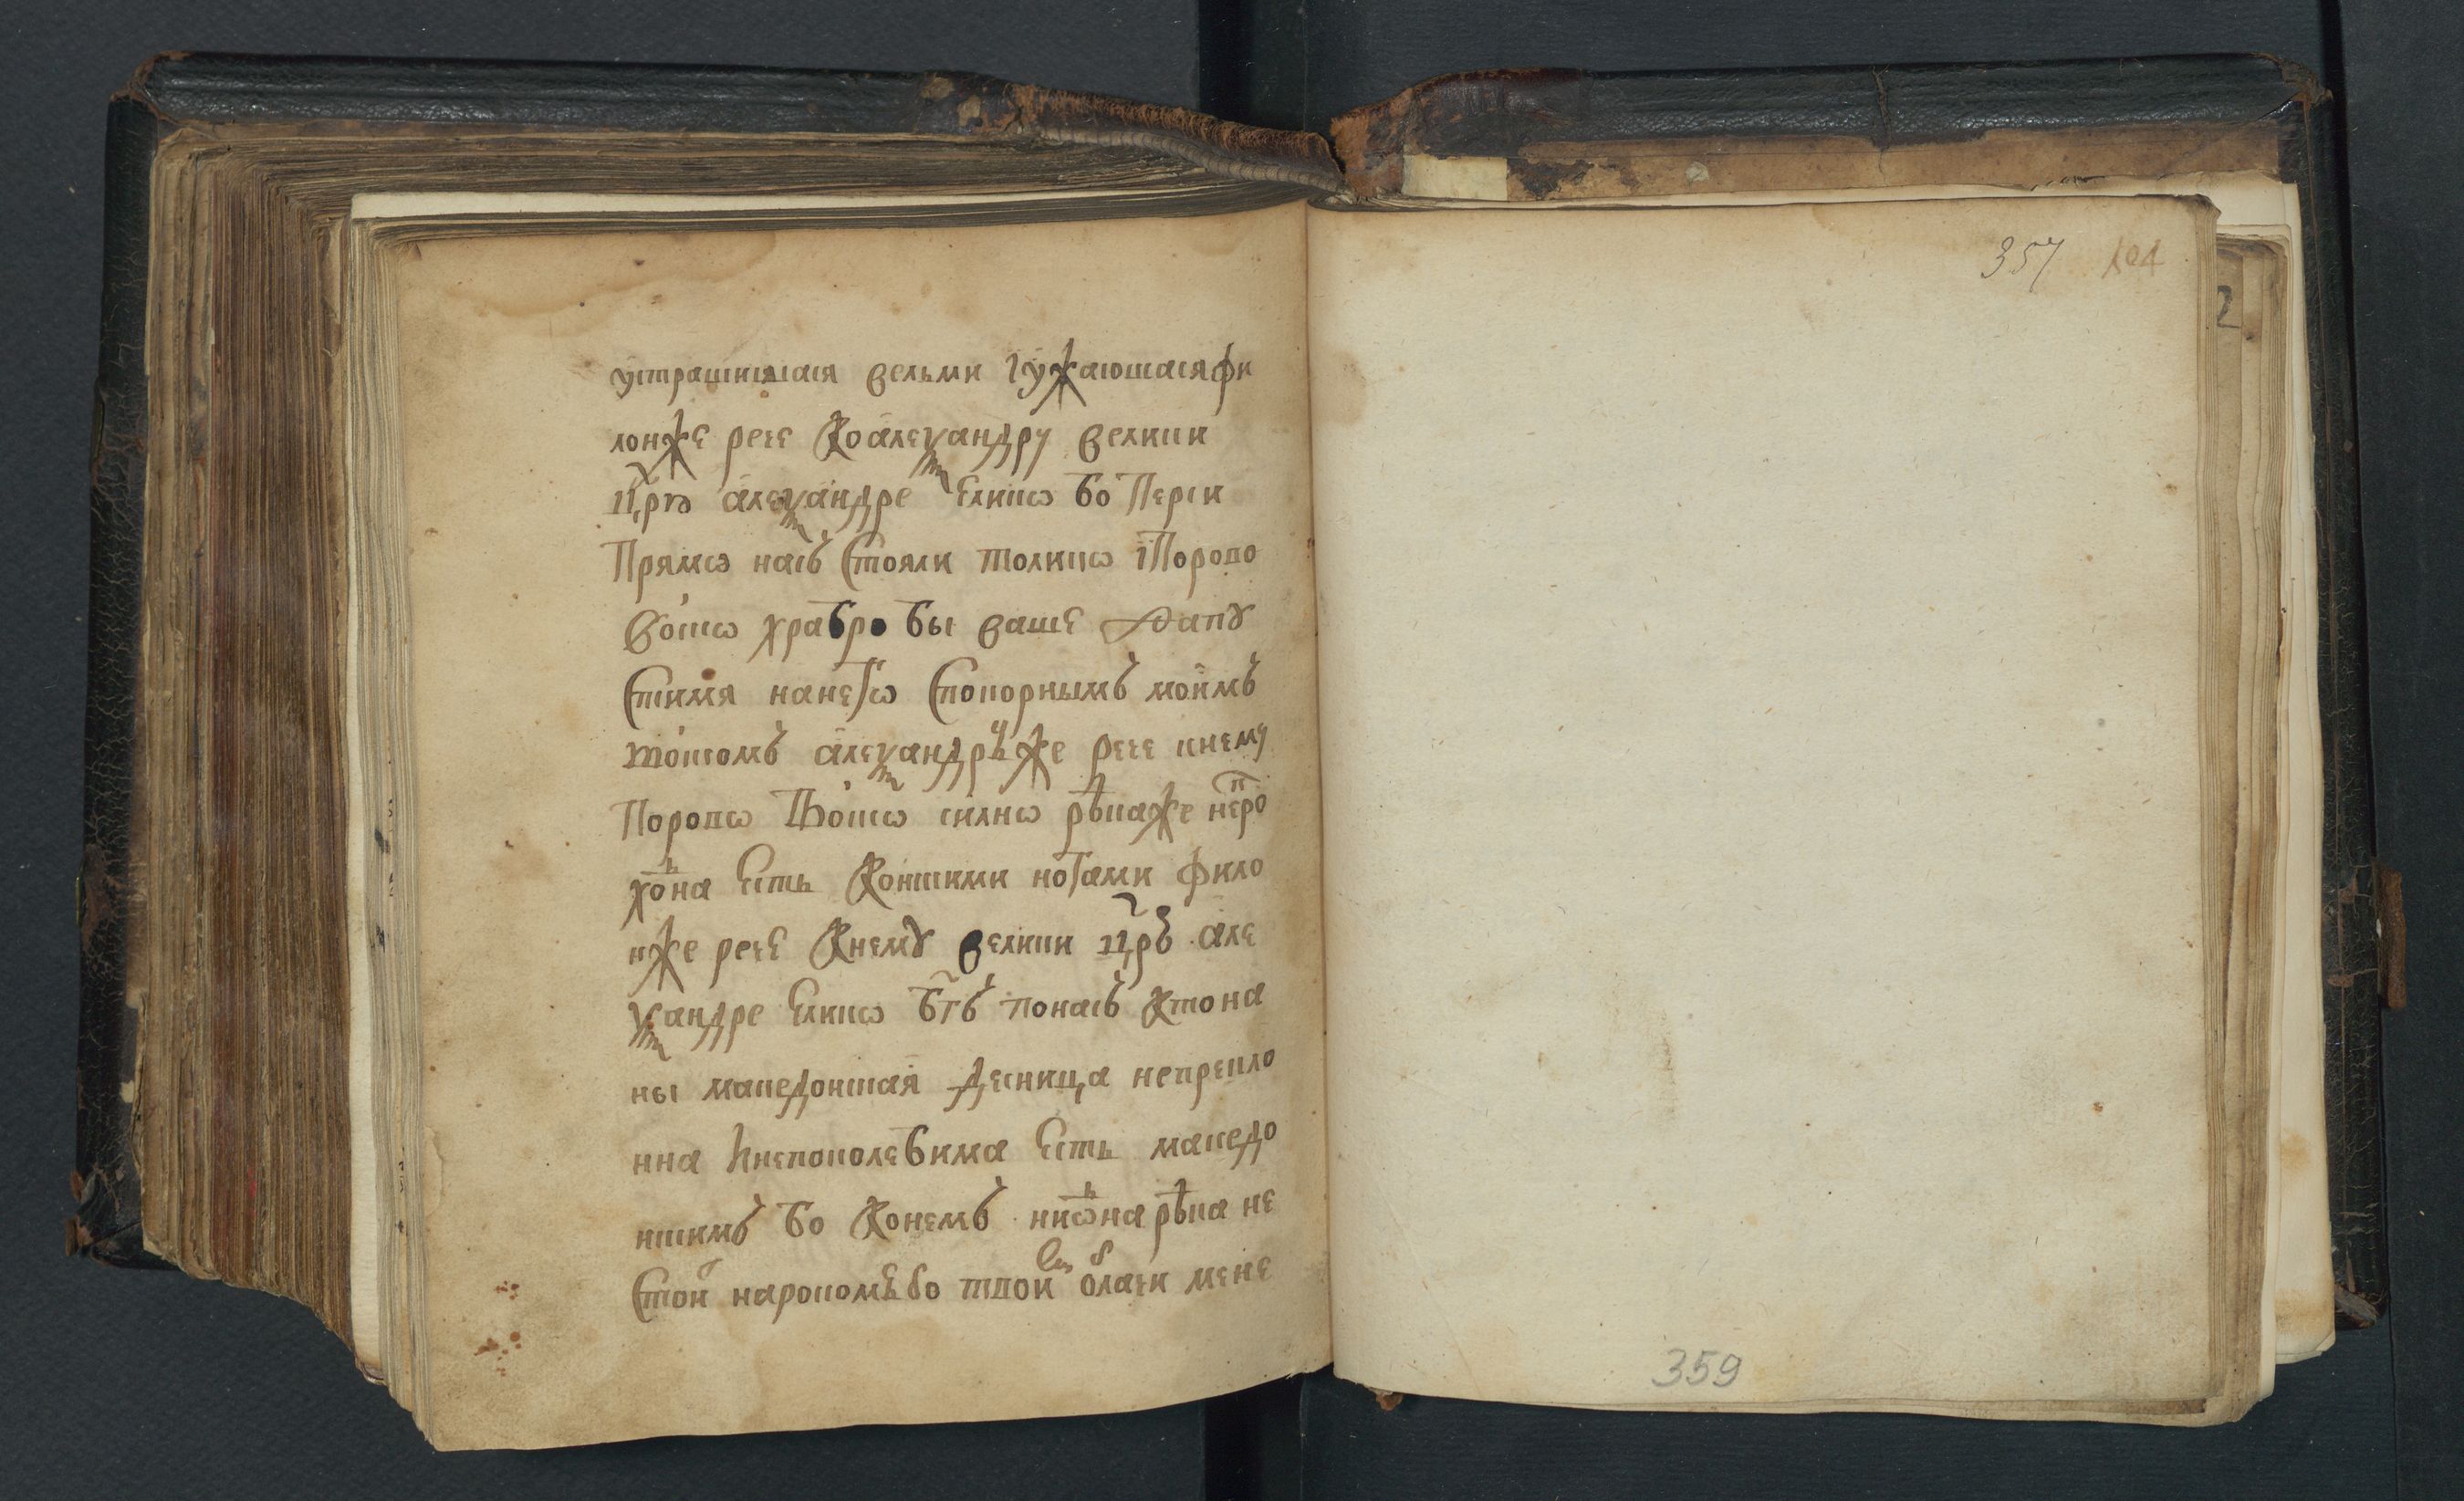 устрашишася вельми iужасошася фи
лонже рече ко алеѯандру великии
цр҃ю алеѯандре елико бо перси
прямо насъ стояли толико i порово
во́ико храбро бы ваше ѿпу
стимя на него стокорнымъ моимъ
во́искомъ алеѯандръ же рече к нему
Порово во́ико силно рѣка же непро
хо́дна есть конскими ногами фило
нже рече к нему великии цр҃ъ але
ѯандре елико бг҃ъ по насъ кто на
ны македонская десница непрекло
нна и непоколебима есть македо
нскимъ бо конемъ никоѡна рѣка не
стои нарокомъ бо твои облачи мене
357 104
2
359